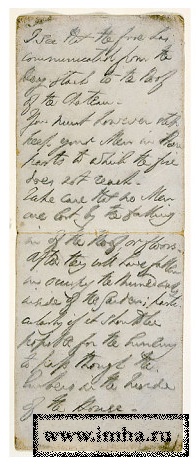 I see that the fire has
communicated from the
hay stack to the roof
of the Chateau.
You must however still
keep your Men in those
parts to which the fire
does not reach.
Take care that no Men
are lost by the falling
in of the Roof or floors.
After they will have fallen
in occupy the Ruined walls
inside of the Garden; parti
cularly if it should be
possible for the Enemy
to pass through the
Embers in the Inside
of the House.
www.imha.ru